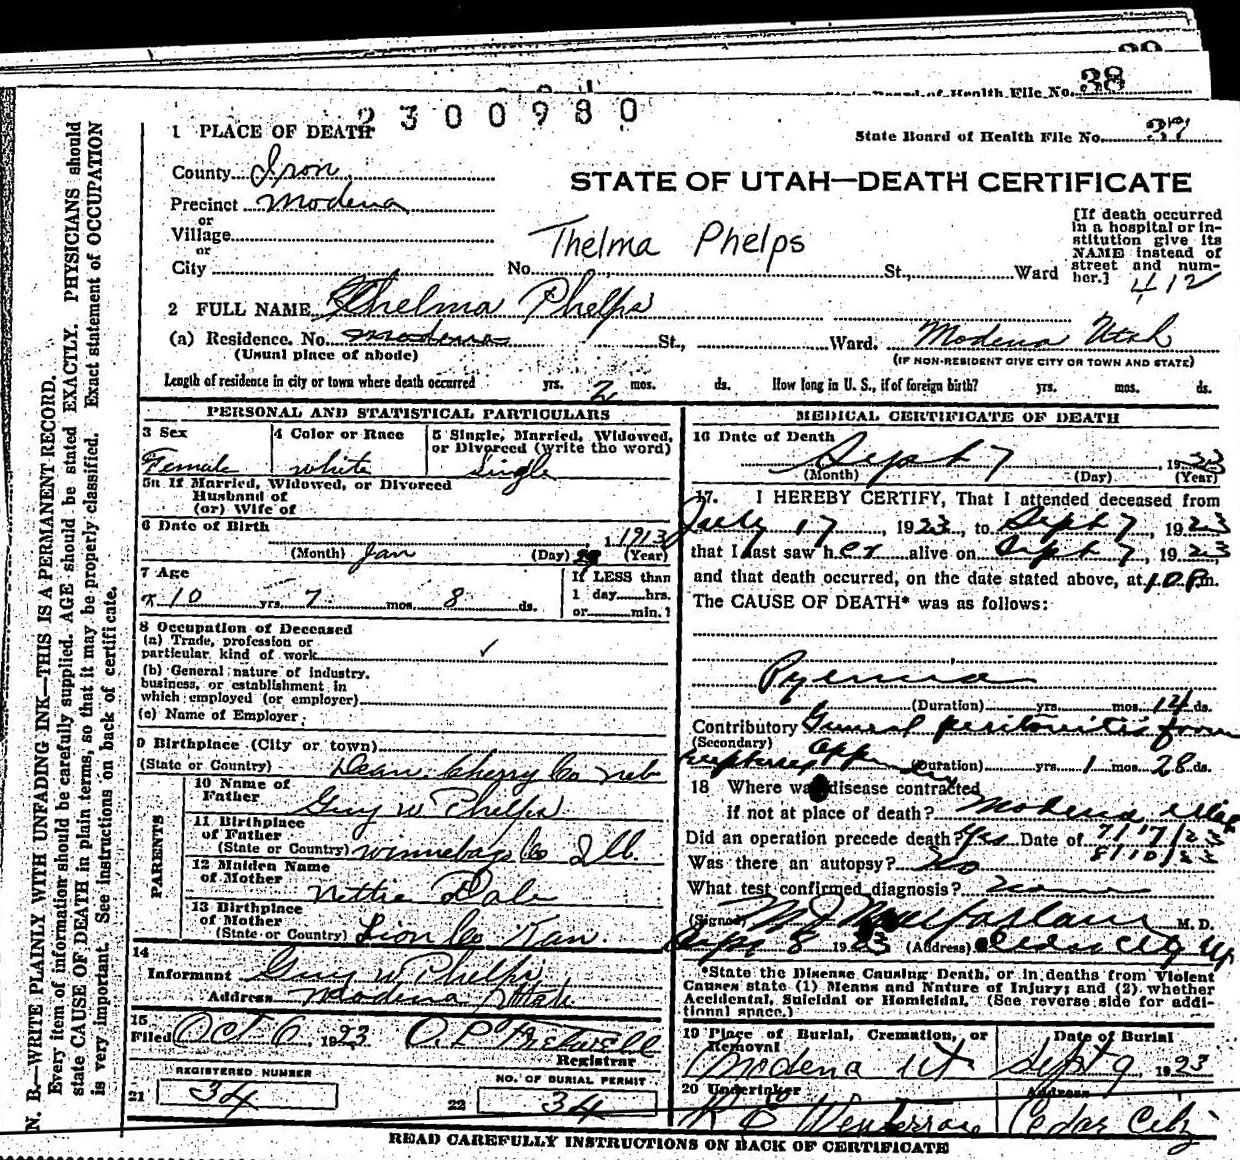 38
Board of Health File No.
2300980
1 PLACE OF DEATH
State Board of Health File No. 37
County Iron
STATE OF UTAH—DEATH CERTIFICATE
Precinct Modena
or
Village
or
City
Thelma Phelps
No. St., Ward
[If death occurred
in a hospital or in-
stitution give its
NAME instead of
street and num-
ber.]
412
2 FULL NAME Thelma Phelps
(a) Residence. No. Modena St., Ward. Modena Utah
(Usual place of abode) (IF NON-RESIDENT GIVE CITY OR TOWN AND STATE)
Length of residence in city or town where death occurred yrs. 2 mos. ds. How long in U. S., if of foreign birth? yrs. mos. ds.
PERSONAL AND STATISTICAL PARTICULARS
3 Sex 4 Color or Race 5 Single, Married, Widowed,
or Divorced (write the word)
Female white Single
5a If Married, Widowed, or Divorced
Husband of
(or) Wife of
6 Date of Birth
1913
(Month) Jan (Day) (Year)
7 Age
10 yrs. 7 mos. 8 ds.
If LESS than
1 day hrs.
or min.?
8 Occupation of Deceased
(a) Trade, profession or
particular kind of work ✓
(b) General nature of industry,
business, or establishment in
which employed (or employer)
(c) Name of Employer
9 Birthplace (City or town)
(State or Country) Dean Cherry Co Neb
PARENTS
10 Name of
Father Guy W Phelps
11 Birthplace
of Father
(State or Country) Winnebago Co Ill.
12 Maiden Name
of Mother Nettie Dale
13 Birthplace
of Mother
(State or Country) Lion Co Kan.
14
Informant Guy W Phelps
Address Modena Utah
15
Filed Oct 6, 1923 O. P. Fretwell
Registrar
REGISTERED NUMBER NO. OF BURIAL PERMIT
21 34 22 34
MEDICAL CERTIFICATE OF DEATH
16 Date of Death
Sept 7, 1923
(Month) (Day) (Year)
17. I HEREBY CERTIFY, That I attended deceased from
July 17, 1923, to Sept 7, 1923
that I last saw her alive on Sept 7, 1923
and that death occurred, on the date stated above, at 10 P.m.
The CAUSE OF DEATH* was as follows:
Pyemia
(Duration) yrs. mos. 14 ds.
Contributory General peritonitis from
(Secondary)
(Duration) yrs. 1 mos. 28 ds.
18 Where was disease contracted
if not at place of death? Modena
Did an operation precede death? Yes Date of 7/17/23
8/10/23
Was there an autopsy? No
What test confirmed diagnosis?
(Signed) M J Macfarlane M. D.
Sept 8 1923 (Address) Cedar City Ut
*State the Disease Causing Death, or in deaths from Violent
Causes state (1) Means and Nature of Injury; and (2) whether
Accidental, Suicidal or Homicidal. (See reverse side for addi-
tional space.)
19 Place of Burial, Cremation, or Date of Burial
Removal
Modena Ut Sept 9 1923
20 Undertaker Address
Cedar City
READ CAREFULLY INSTRUCTIONS ON BACK OF CERTIFICATE
N. B.—WRITE PLAINLY WITH UNFADING INK—THIS IS A PERMANENT RECORD.
Every item of information should be carefully supplied. AGE should be stated EXACTLY. PHYSICIANS should
state CAUSE OF DEATH in plain terms, so that it may be properly classified. Exact statement of OCCUPATION
is very important. See instructions on back of certificate.